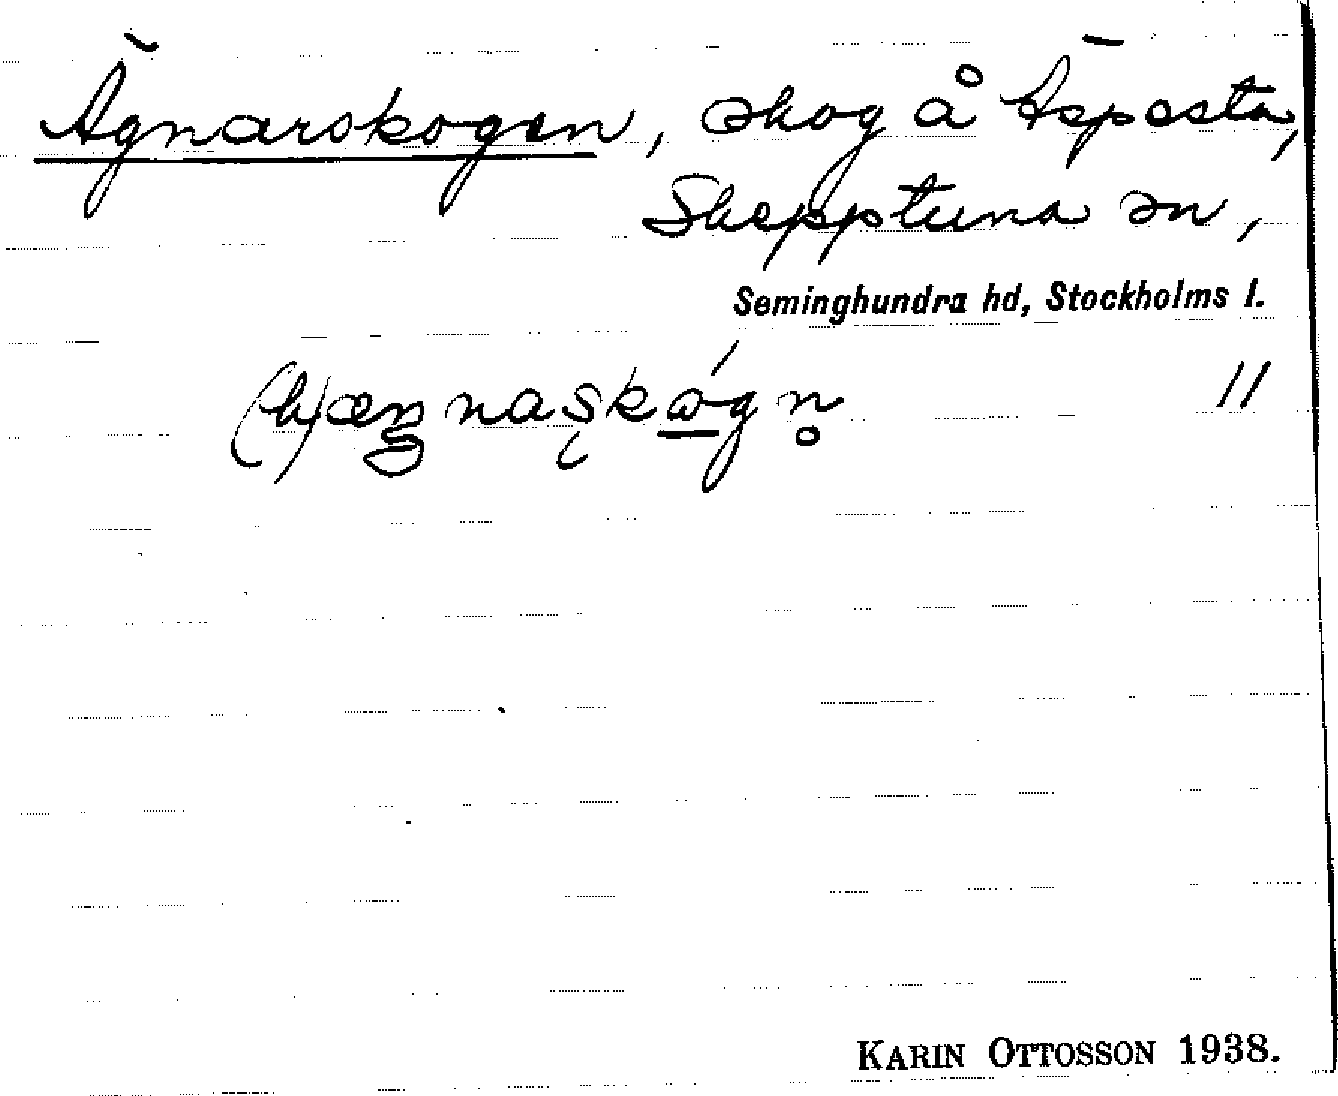 Ägnarskogen, skog å Äspesta,
Skepptuna sn,
Seminghundra hd, Stockholms l.
(h)æŋnaʂkógn̥ 11
KARIN OTTOSSON 1938.